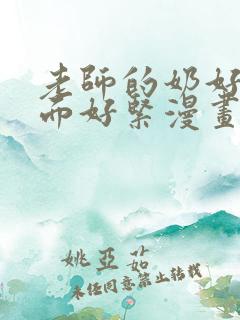 老師的奶好
而好緊漫畫
姚亞茹
未經同意禁止轉載